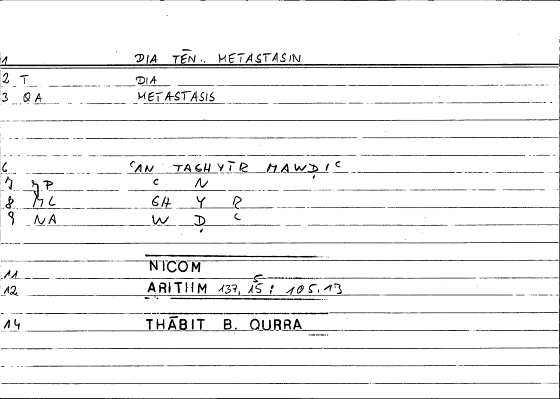 1 DIA TĒN.. METASTASIN
2 T DIA
3 QA METASTASIS
6 ʿAN TAGHYĪR MAWḌIʿ
7 JP ʿ N
8 ML GH Y R
9 NA W Ḍ ʿ
11 NICOM
12 ARITHM 137, 15 : 105.13
14 THĀBIT B. QURRA